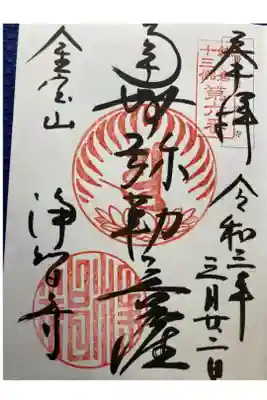 奉拝
令和三年
三月廿二日
鎌倉
十三佛
第六番
弥勒菩薩
金宝山
浄智寺